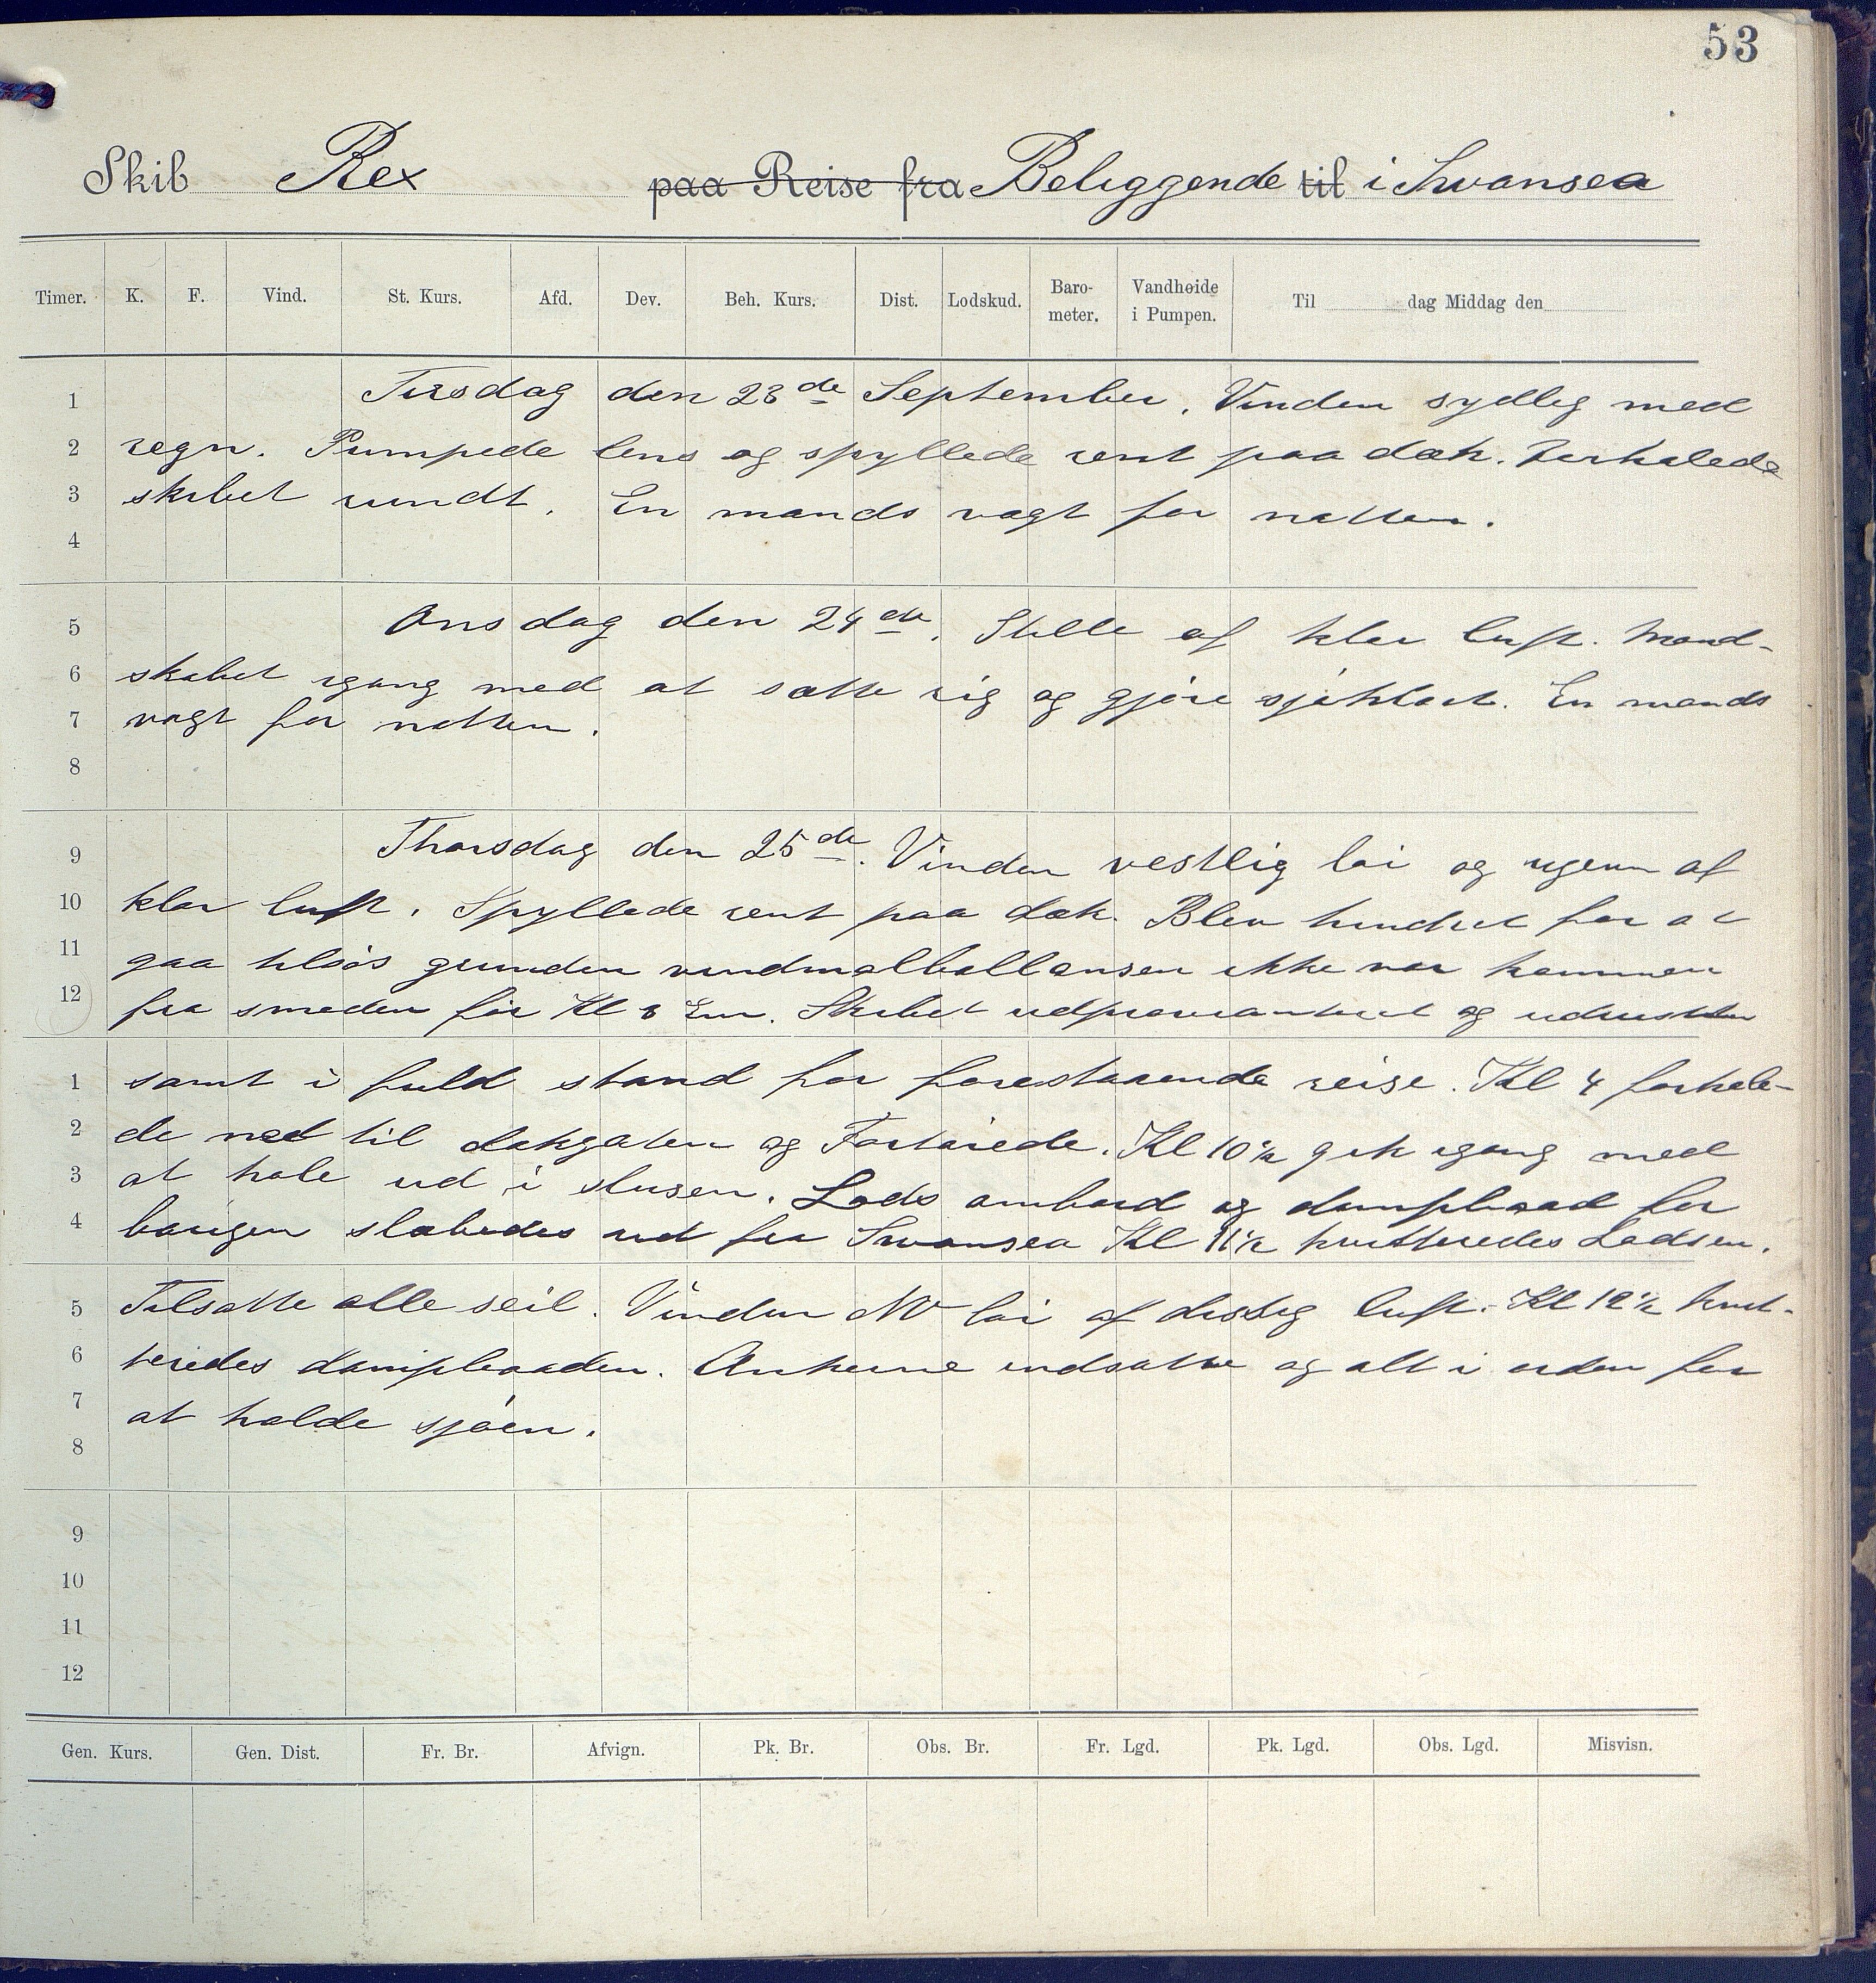 53
Skib Rex paa Reise fra Beliggende til i Swansea
Timer. K. F. Vind. St. Kurs. Afd. Dev. Beh. Kurs. Dist. Lodskud. Baro-meter. Vandhøide i Pumpen. Til dag Middag den
1 Tirsdag den 23de September. Vinden sydlig med
2 regn. Pumpede lens og spyllede rent paa dæk. Forhalede
3 skibet rundt. En mands vagt for natten.
4
5 Onsdag den 24de. Stille af klar luft. Mand-
6 skabet igang med at sætte rig og gjøre sjøklart. En mands
7 vagt for natten.
8
9 Thorsdag den 25de. Vinden vestlig løi og af
10 klar luft. Spyllede rent paa dæk. Blev hindret for at
11 gaa tilsøs grunden vindmølleballansen ikke var kommen
12 fra smeden før Kl 3 Em. Skibet udprovianteret og udrustet
1 samt i fuld stand for forestaaende reise. Kl 4 forhale-
2 de ned til dokgaten og Fortøiede. Kl 10½ gik igang med
3 at hale ud i slusen. Lods ombord og dampbaad for
4 bougen slæbedes ud fra Swansea Kl 11½ kvitteredes Lodsen.
5 Tilsatte alle seil. Vinden NV løi af disig luft. Kl 12½ kvit-
6 teredes dampbaaden. Ankerne indsatte og alt i orden for
7 at holde sjøen.
8
9
10
11
12
Gen. Kurs. Gen. Dist. Fr. Br. Afvign. Pk. Br. Obs. Br. Fr. Lgd. Pk. Lgd. Obs. Lgd. Misvisn.